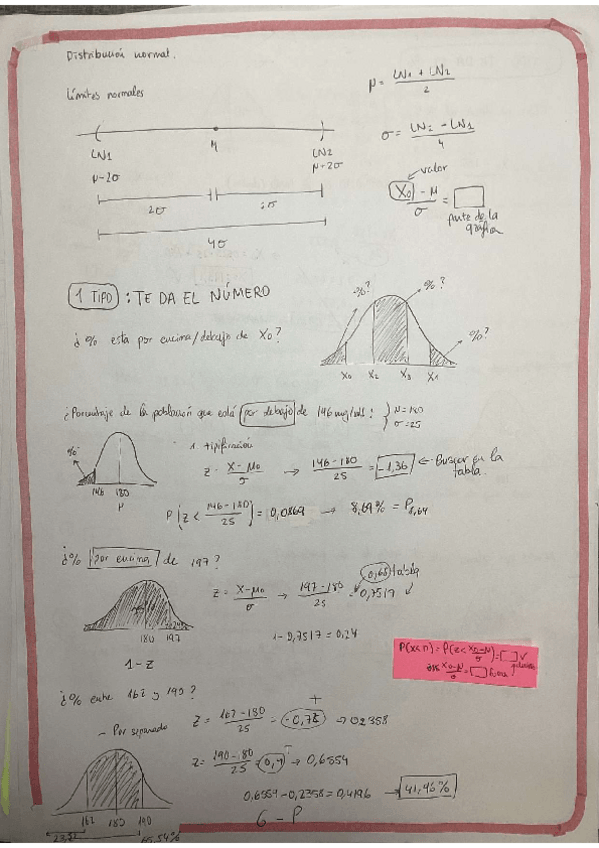 Distribución normal.
μ = LN1 + LN2 / 2
Límites normales
σ = LN2 - LN1 / 4
LN1
μ
LN2
μ-2σ
μ+2σ
valor
X0 - μ / σ =
pnte de la
gráfica
2σ
2σ
4σ
1 TIPO : TE DA EL NÚMERO
¿% esta por encima/debajo de X0?
%?
%?
%?
X0 X2 X3 X1
¿Porcentaje de la población que está por debajo de 146 mg/dL? } μ=180
σ=25
%
146 180
μ
1. tipificación
z = X-μ0 / σ → 146-180 / 25 = -1,36 ← Buscar en la
tabla.
P (z < 146-180 / 25) = 0,0869 → 8,69% = P8,69
¿% por encima de 197?
180 197
z = X-μ0 / σ → 197-180 / 25 = 0,68 tabla
0,7517
1-0,7517 = 0,24
1-z
P(x<n) = P(z< X0-μ / σ) =
X0-μ / σ =
¿% entre 162 y 190?
- Por separado
z = 162-180 / 25 = -0,72 → 0,2358
z = 190-180 / 25 = 0,4 → 0,6554
0,6554-0,2358=0,4196 → 41,96%
G - P
162 180 190
65,54%